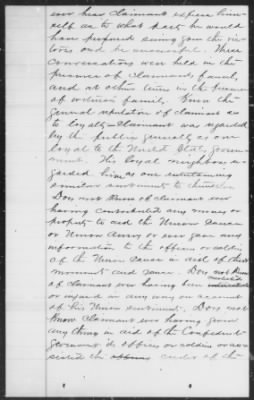 ever hear Claimant express him-
self as to what part he would
have preferred seeing gain the vic-
tories and be successful. These
conversations were held in the
presence of Claimants family,
and at other times in the presence
of witness family. Knew the
general reputation of claimant as
to loyalty - Claimant was regarded
by the public generally as one
loyal to the United States govern-
ment. His loyal neighbors re-
garded him as one entertaining
similar sentiments to themselves.
Does not know of claimant ever
having contributed any money or
property to aid the Union cause
or Union Army or ever gave any
information to the officers or soldiers
of the Union cause in aid of their
movements and cause. Does not know
of claimant ever having been molested
or injured in any way on account
of his Union sentiment. Does not
know Claimant ever having given
any thing in aid of the Confederate
Government its officers or soldiers or as-
sisted the under of the